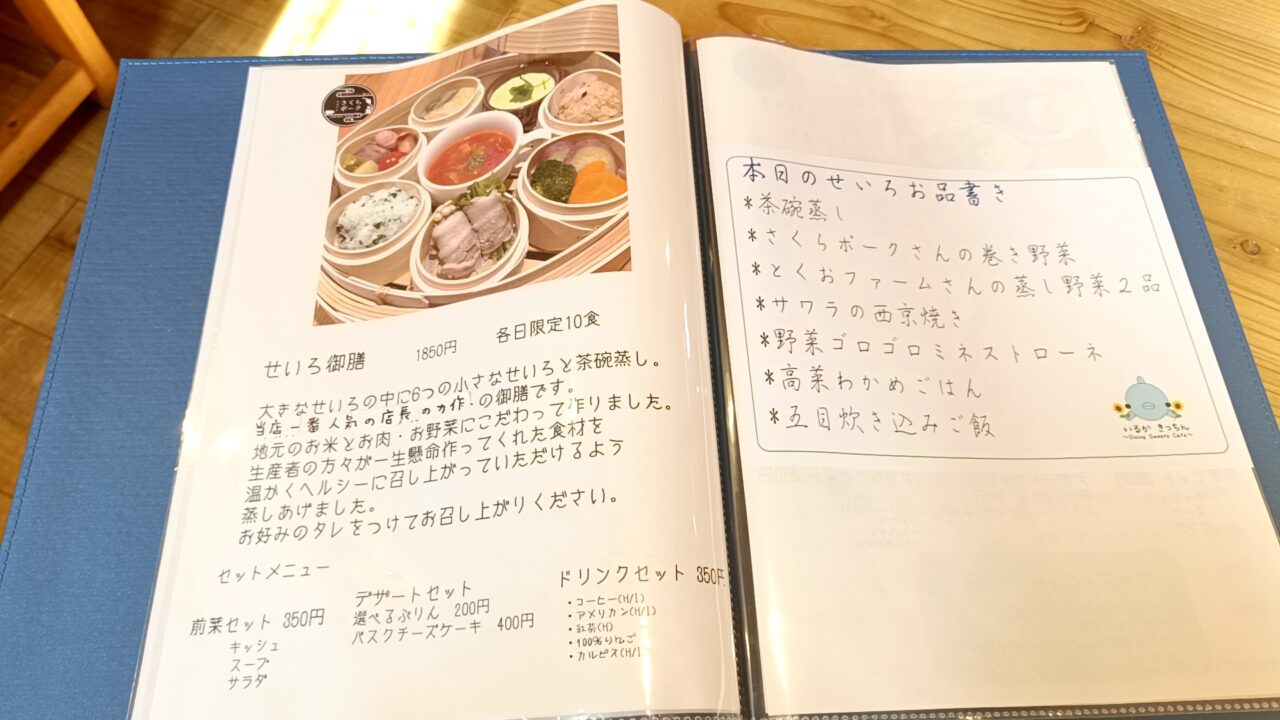 さくら
ポーク
せいろ御膳 1850円 各日限定10食
大きなせいろの中に6つの小さなせいろと茶碗蒸し。
当店一番人気の店長の力作の御膳です。
地元のお米とお肉・お野菜にこだわって作りました。
生産者の方々が一生懸命作ってくれた食材を
温かくヘルシーに召し上がっていただけるよう
蒸しあげました。
お好みのタレをつけてお召し上がりください。
セットメニュー
前菜セット 350円
キッシュ
スープ
サラダ
デザートセット
選べるぷりん 200円
バスクチーズケーキ 400円
ドリンクセット 350円
・コーヒー(H/I)
・アメリカン(H/I)
・紅茶(H)
・100%りんご
・カルピス(H/I
本日のせいろお品書き
*茶碗蒸し
*さくらポークさんの巻き野菜
*とくおファームさんの蒸し野菜2品
*サワラの西京焼き
*野菜ゴロゴロミネストローネ
*高菜わかめごはん
*五目炊き込みご飯
いるか きっちん
~Dining Sweets Cafe~